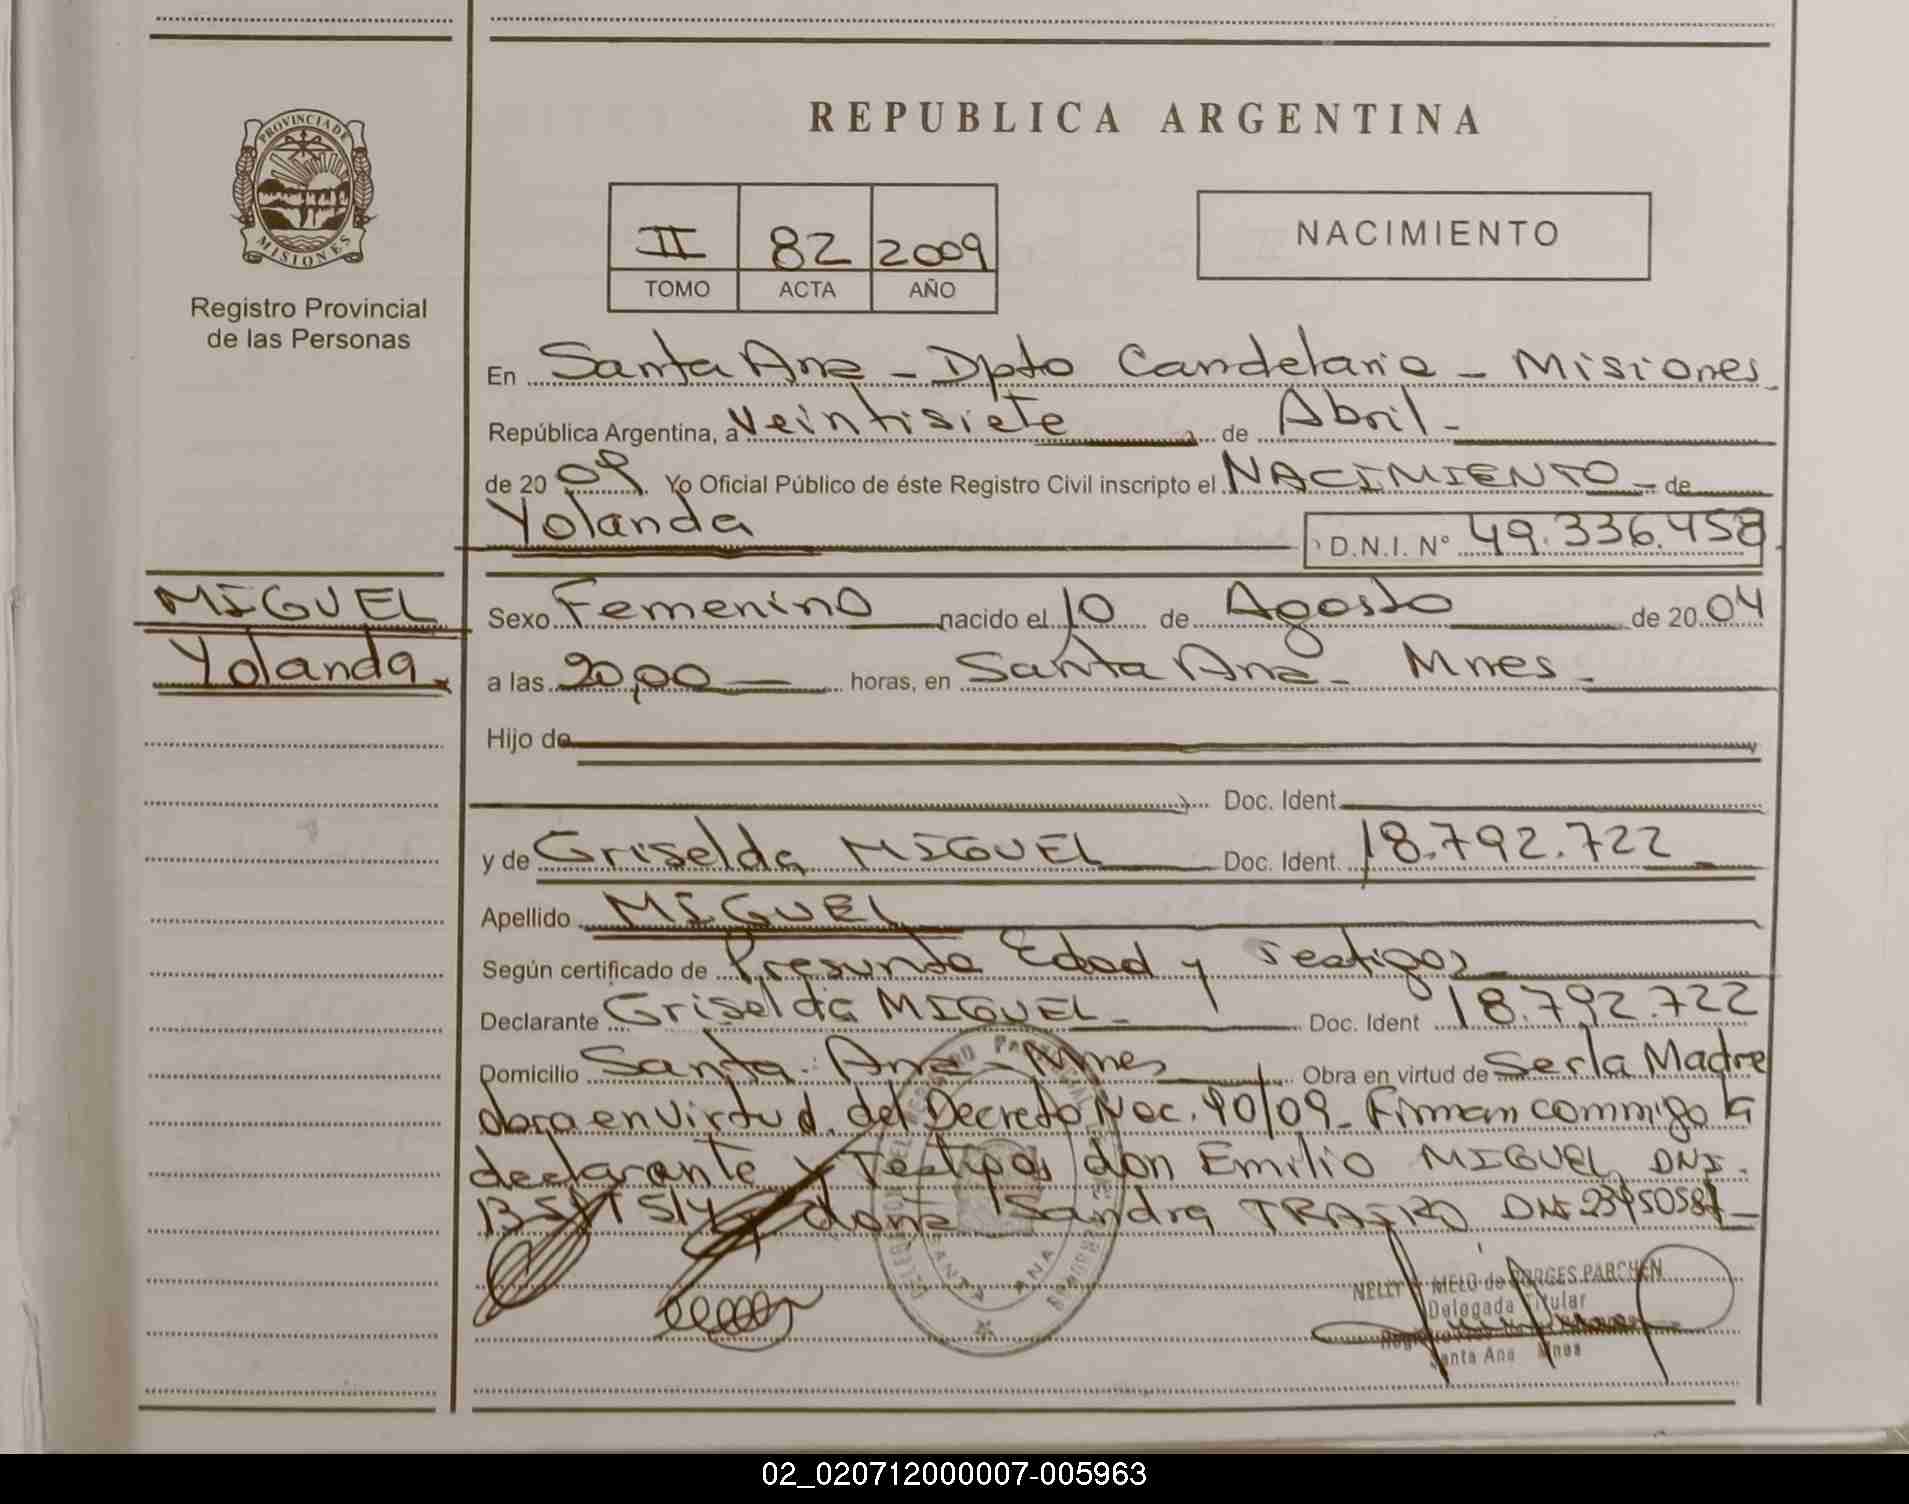 REPUBLICA ARGENTINA
PROVINCIA DE MISIONES
Registro Provincial
de las Personas
II 82 2009
TOMO ACTA AÑO
NACIMIENTO
En Santa Ana - Dpto Candelaria - Misiones
República Argentina, a Veintisiete de Abril -
de 20 09 Yo Oficial Público de éste Registro Civil inscripto el NACIMIENTO - de
Yolanda D.N.I. N° 49.336.458
MIGUEL
Yolanda
Sexo Femenino nacido el 10 de Agosto de 20 04
a las 20,00 horas, en Santa Ana - Mnes -
Hijo de
Doc. Ident.
y de Griselda MIGUEL Doc. Ident. 18.792.722
Apellido MIGUEL
Según certificado de Presunta Edad y Testigos
Declarante Griselda MIGUEL - Doc. Ident 18.792.722
Domicilio Santa Ana - Mnes Obra en virtud de Ser la Madre
en virtud del Decreto Nac. 90/09 - Firman conmigo la
declarante y Testigos don Emilio MIGUEL DNI.
doña Sandra DNI
SANTA ANA
NELLY MELO de BORGES PARCHEN
Delegada Titular
Santa Ana Mnes
02_020712000007-005963